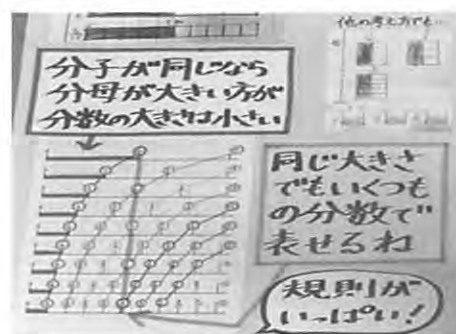 他の考え方でも…
分子が同じなら
分母が大きい方が
分数の大きさは小さい
同じ大きさ
でもいくつも
の分数で
表せるね
規則が
いっぱい!